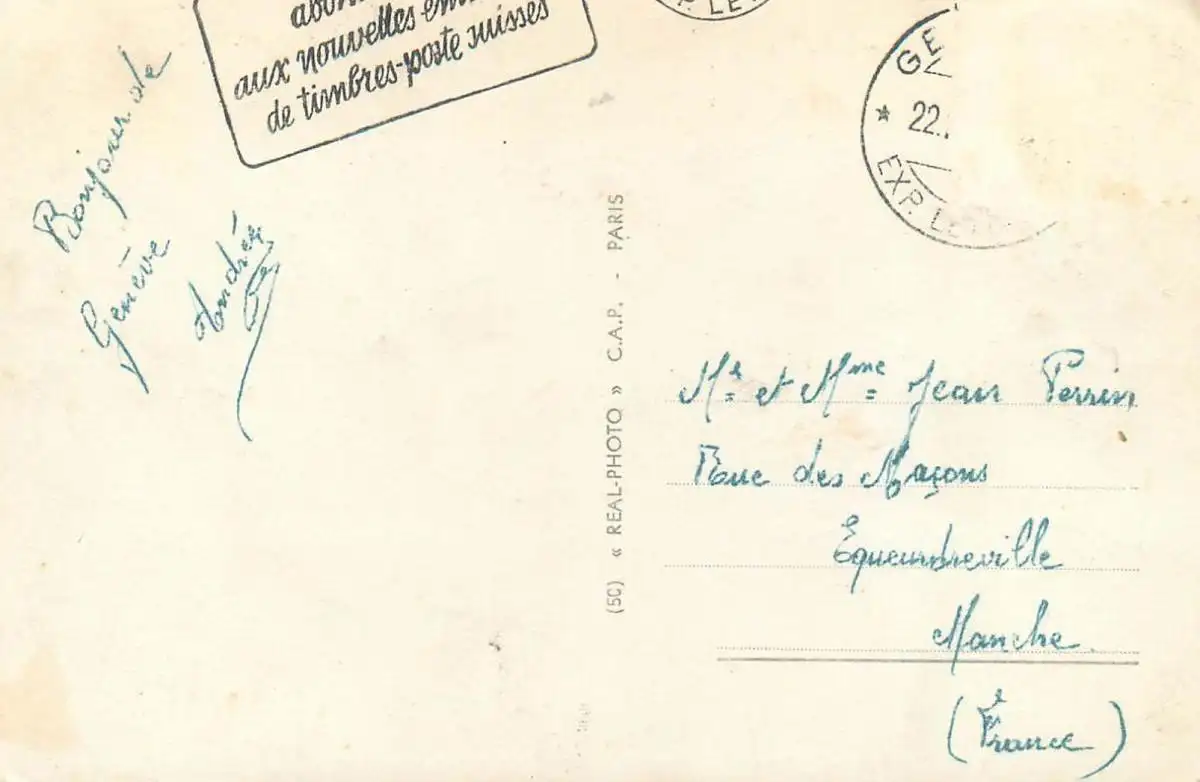 aux nouvelles
de timbres-poste suisses
Bonjour de
Genève
Andrée
GE
22.
EXP. LE
(5C) « REAL-PHOTO » C.A.P. - PARIS
Mr et Mme Jean Perrin
Rue des Maçons
Equeurdreville
Manche.
(France)